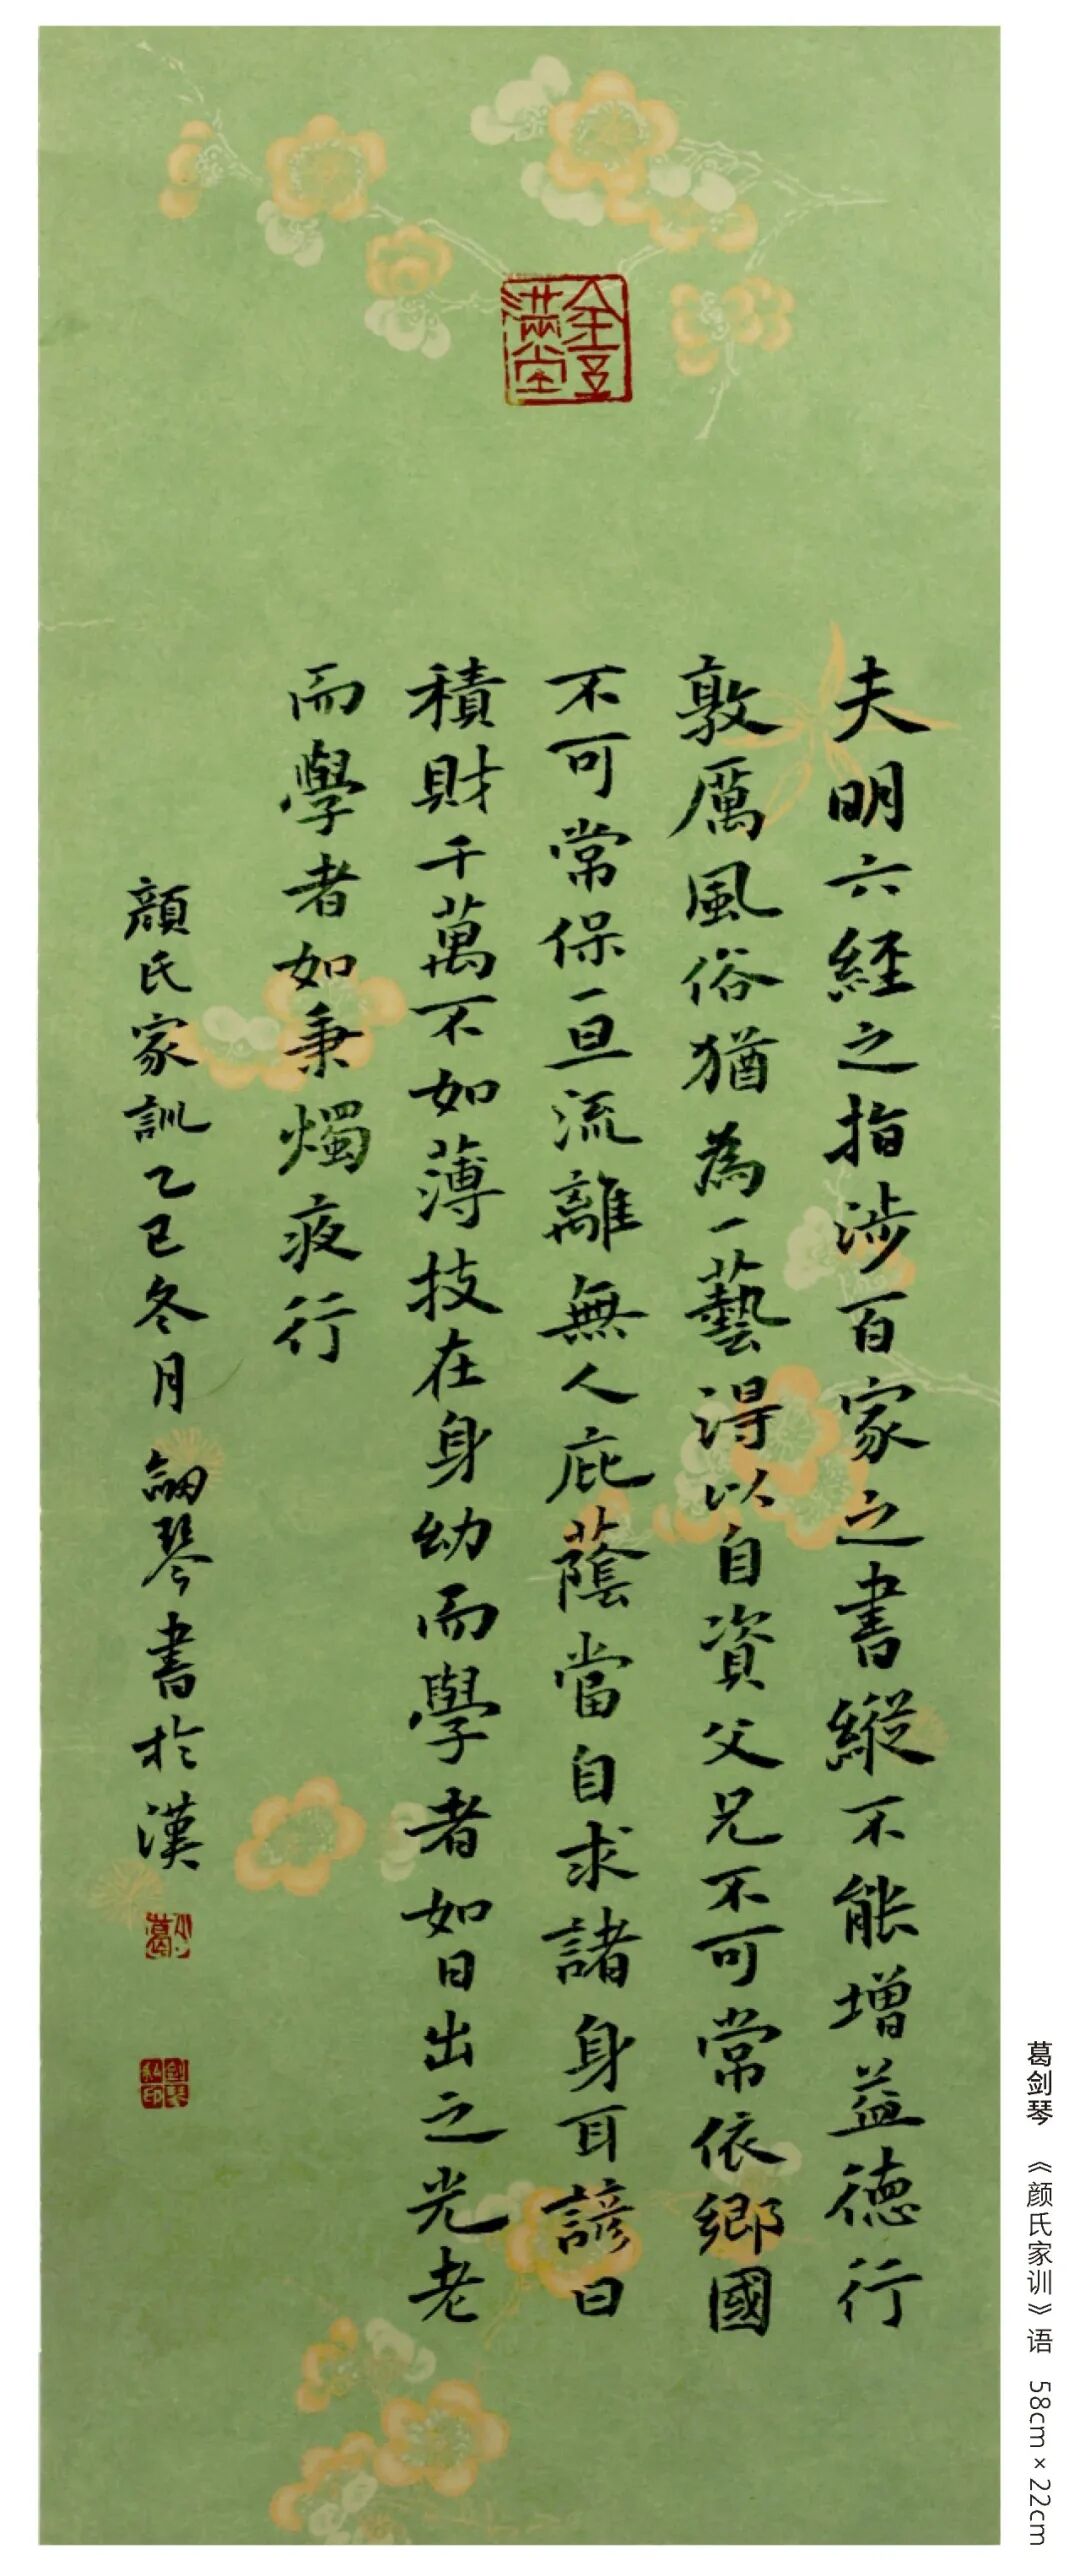 金玉滿堂
夫明六経之指涉百家之書縱不能增益德行
敦厲風俗猶為一藝得以自資父兄不可常依鄉國
不可常保一旦流離無人庇蔭當自求諸身耳諺曰
積財千萬不如薄技在身幼而學者如日出之光老
而學者如秉燭夜行
顏氏家訓乙巳冬月劒琴書於漢
葛
劍琴私印
葛剑琴 《颜氏家训》语 58cm×22cm